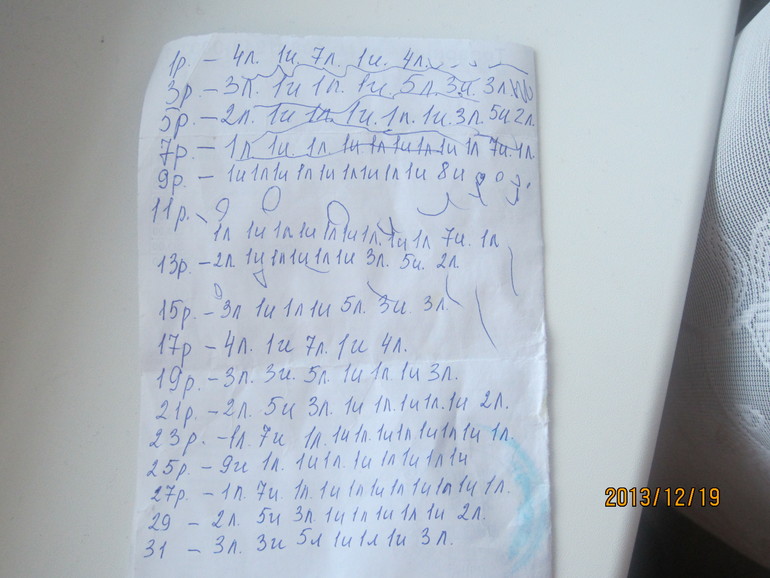 1р. – 4л. 1и 7л. 1и. 4л.
3р – 3л. 1и 1л. 1и. 5л. 3и. 3л
5р. – 2л. 1и 1л. 1и. 1л. 1и. 3л. 5и 2л.
7р. – 1л 1и 1л 1и 1л 1и 1л 1и 1л 7и. 1л.
9р. – 1и 1л 1и 1л 1и 1л 1и 1л 1и 8и
11р.
1л 1и 1л 1и 1л 1и 1л. 1и 1л 7и. 1л
13р. – 2л. 1и 1л 1и 1л 1и 3л. 5и. 2л.
15р. – 3л 1и 1л 1и 5л. 3и 3л.
17р – 4л. 1и 7л. 1и 4л.
19р. – 3л. 3и. 5л 1и 1л. 1и 3л.
21р. – 2л. 5и 3л. 1и 1л. 1и 1л. 1и 2л.
23р. – 1л. 7и 1л. 1и 1л. 1и 1л 1и 1л 1и 1л.
25р. – 9и 1л. 1и 1л. 1и 1л 1и 1л 1и
27р. – 1л. 7и. 1л. 1и 1л 1и 1л 1и 1л 1и 1л.
29 – 2л. 5и 3л. 1и 1л 1и 1л 1и 2л.
31 – 3л. 3и 5л 1и 1л 1и 3л.
2013/12/19